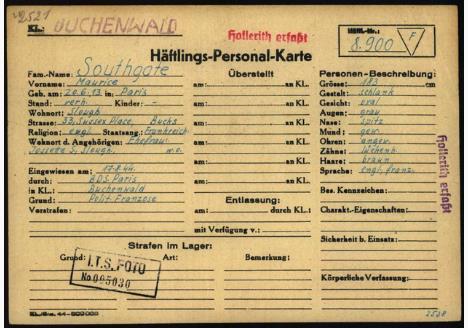 2521
KL.: BUCHENWALD
Hollerith erfaßt
Häftl.-Nr.:
8.900
F
Häftlings-Personal-Karte
Fam.-Name: Southgate
Vorname: Maurice
Geb. am: 20.6.13 in: Paris
Stand: verh. Kinder: -
Wohnort: Slough
Strasse: 33, Sussex Place, Bucks
Religion: engl. Staatsang.: Frankreich
Wohnort d. Angehörigen: Ehefrau:
Josette S., Slough, w.o.
Eingewiesen am: 17.8.44.
durch: BDS. Paris
in KL.: Buchenwald
Grund: Polit. Franzose
Vorstrafen:
Überstellt
am: an KL.
am: an KL.
am: an KL.
am: an KL.
am: an KL.
am: an KL.
Entlassung:
am: durch KL.:
mit Verfügung v.:
Personen-Beschreibung:
Grösse: 183 cm
Gestalt: schlank
Gesicht: oval
Augen: grau
Nase: spitz
Mund: gew.
Ohren: angew.
Zähne: lückenh.
Haare: braun
Sprache: engl. franz.
Bes. Kennzeichen:
Charakt.-Eigenschaften:
Sicherheit b. Einsatz:
Körperliche Verfassung:
Hollerith erfaßt
Strafen im Lager:
Grund: Art: Bemerkung:
I.T.S. FOTO
No. 095030